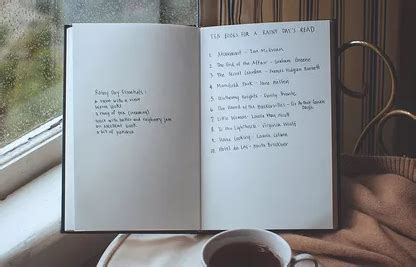 Rainy Day Essentials:
a room with a view
warm socks
a mug of tea
toast with butter and raspberry jam
an excellent book
a bit of patience
TEN BOOKS FOR A RAINY DAY'S READ
1. Atonement - Ian McEwan
2. The End of the Affair - Graham Greene
3. The Secret Garden - Frances Hodgson Burnett
4. Mansfield Park - Jane Austen
5. Wuthering Heights - Emily Bronte
6. The Hound of the Baskervilles - Sir Arthur Conan
Doyle
7. Little Women - Louisa May Alcott
8. To the Lighthouse - Virginia Woolf
9. Home Cooking - Laurie Colwin
10. Hotel du Lac - Anita Brookner